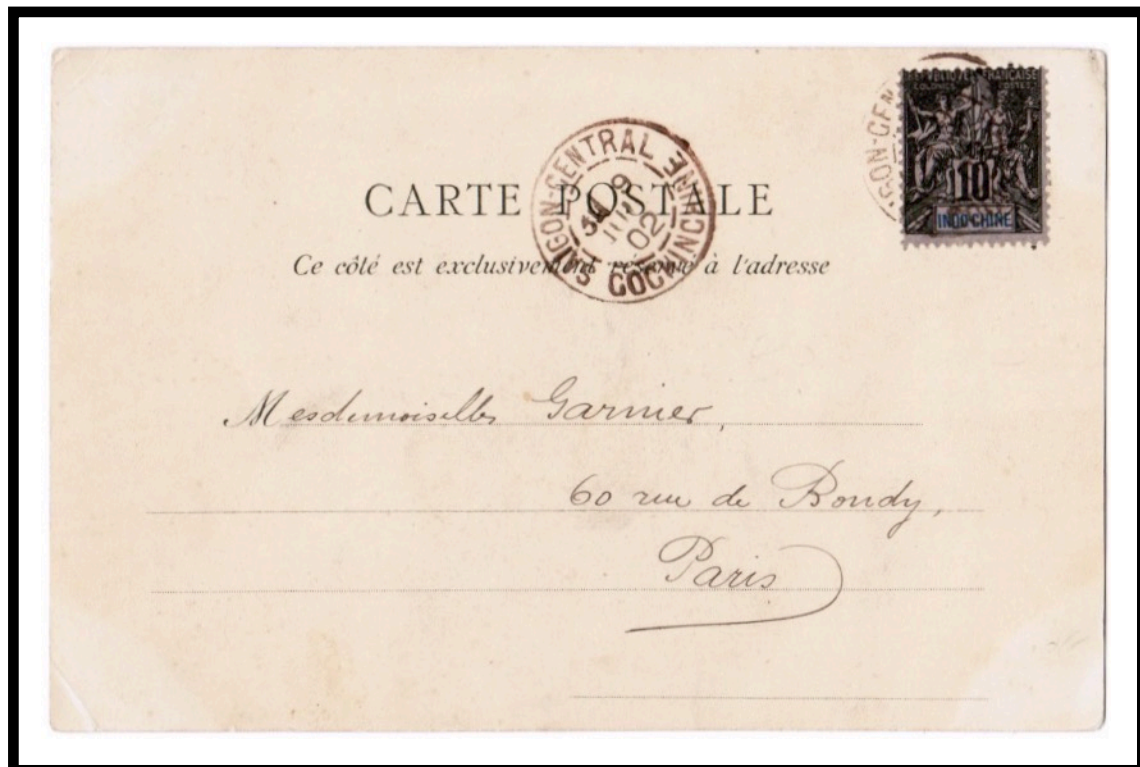 CARTE POSTALE
Ce côté est exclusivement réservé à l'adresse
SAIGON-CENTRAL
COCHINCHINE
9
02
RÉPUBLIQUE FRANÇAISE
COLONIES POSTES
10
INDO-CHINE
Mesdemoiselles Garnier,
60 rue de Bondy,
Paris